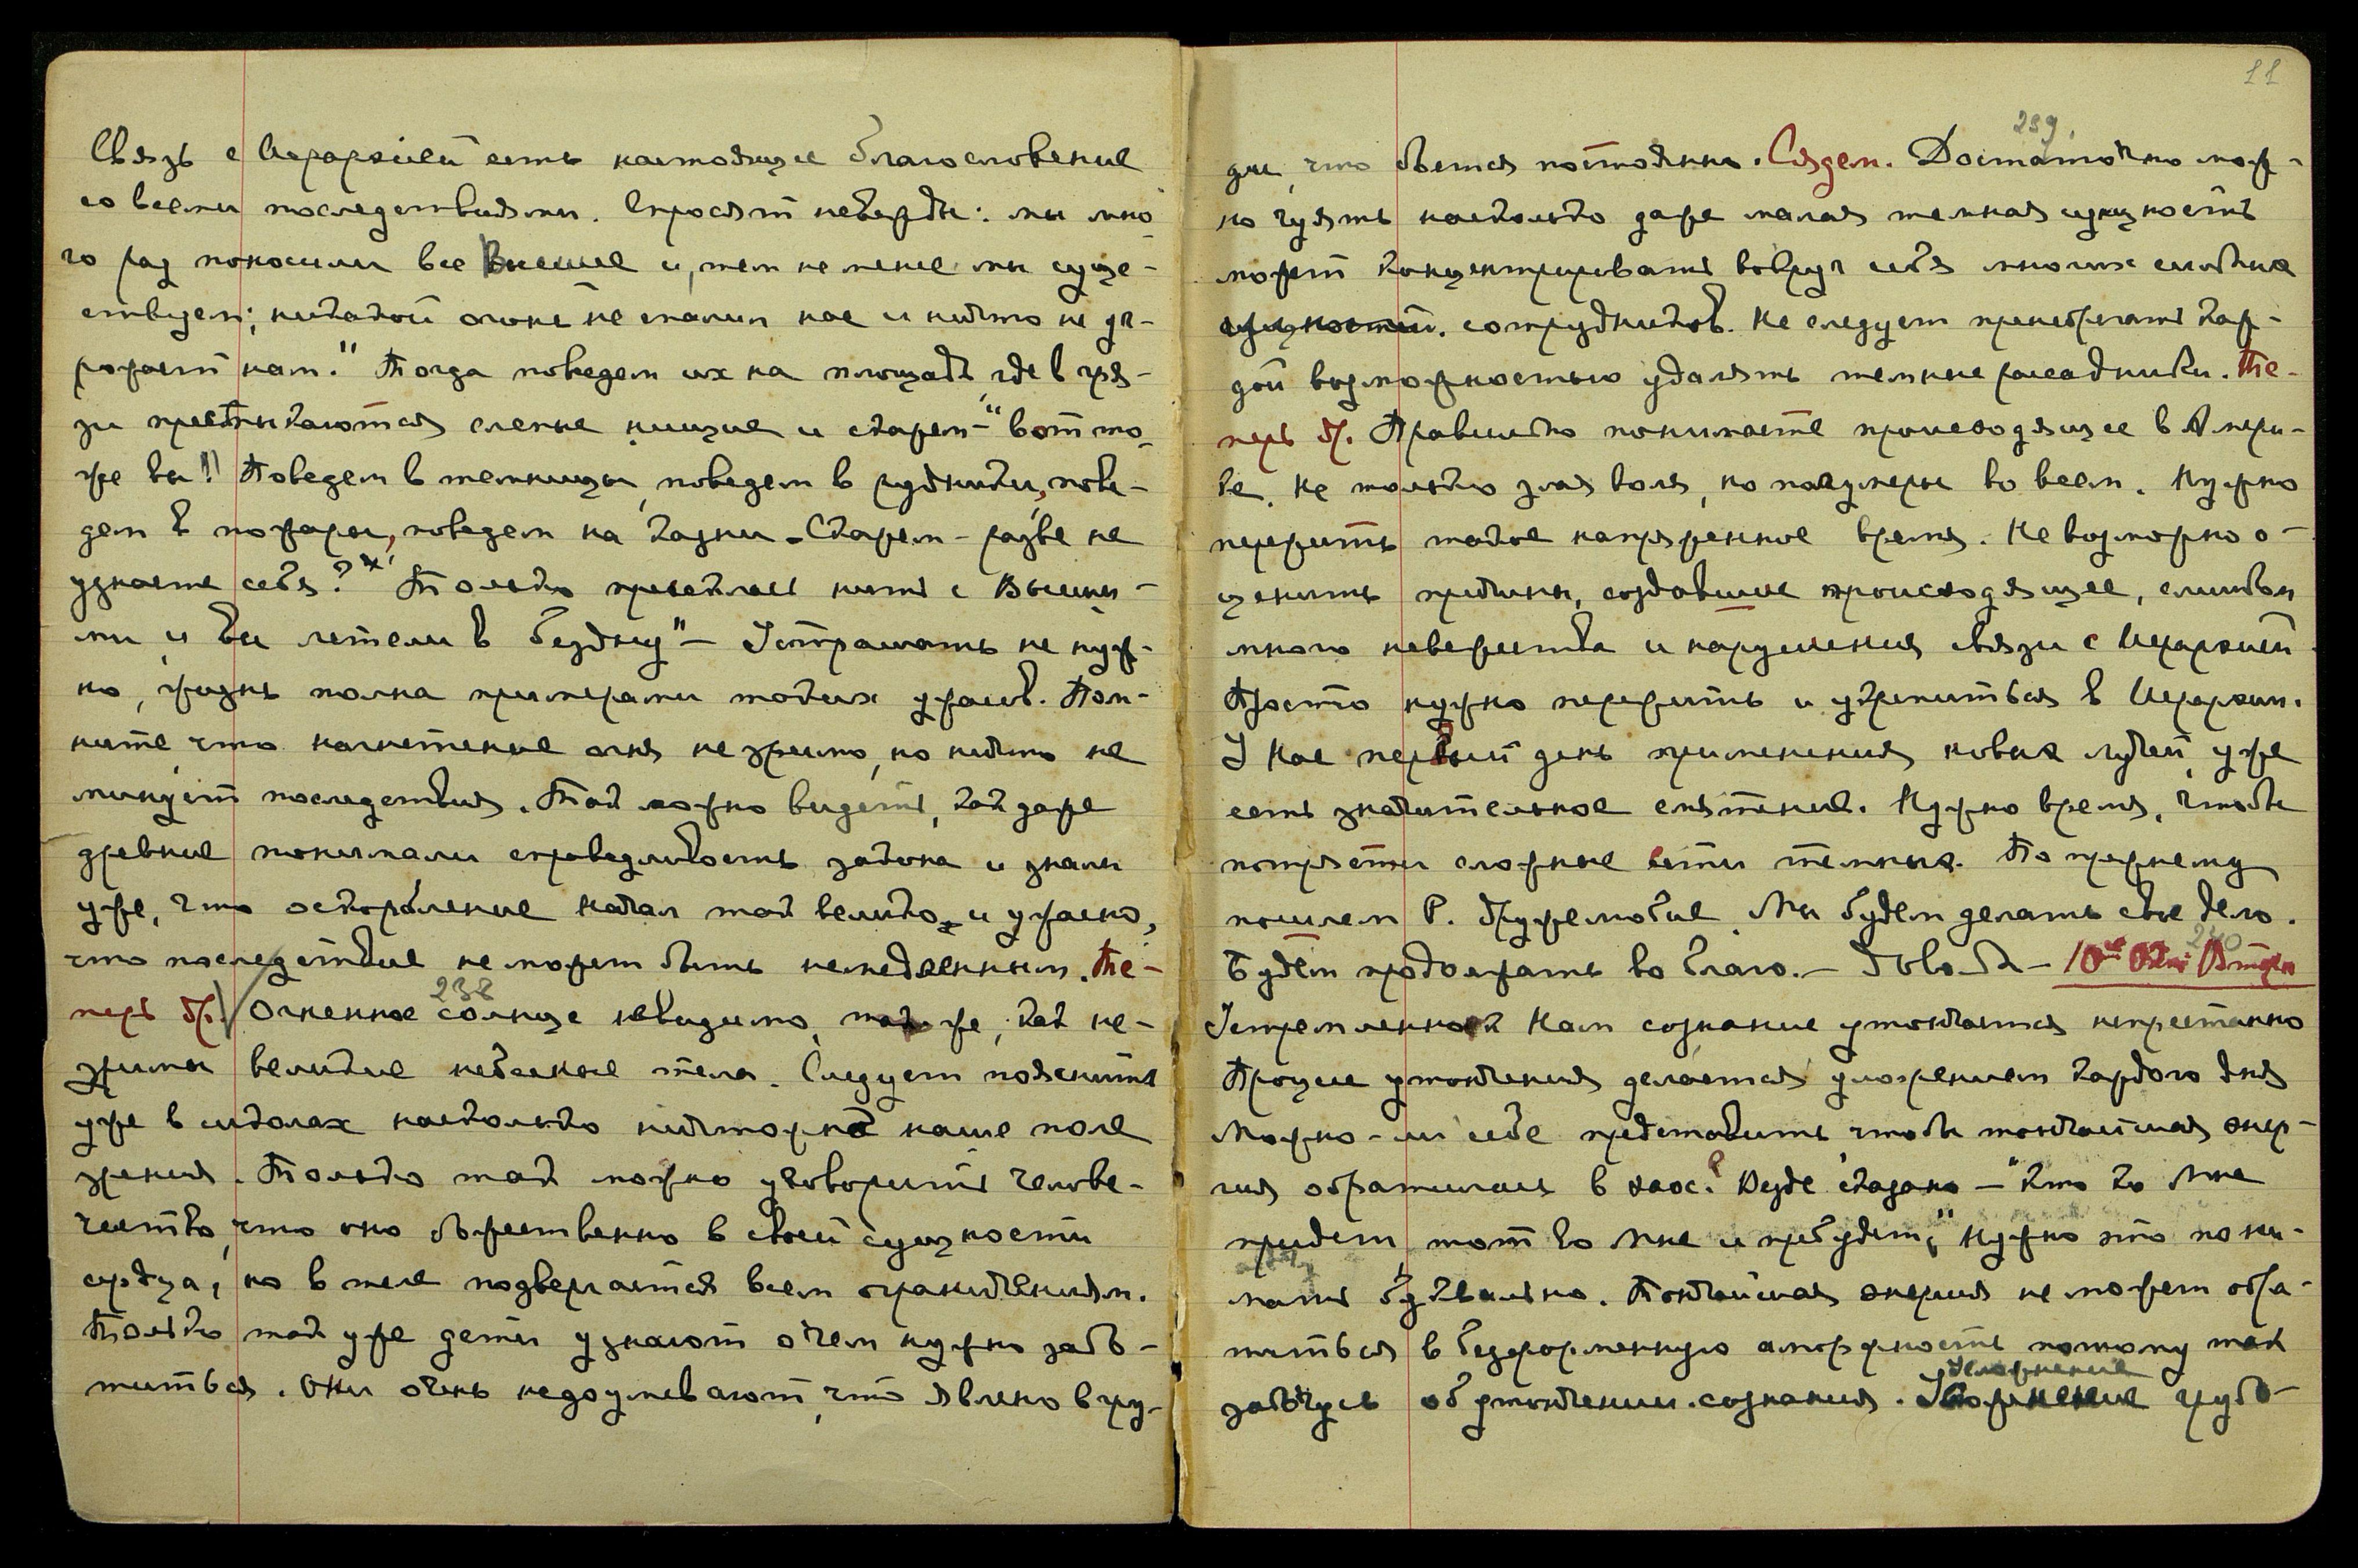 Связь с Иерархией есть настоящее благословение
со всеми последствиями. Спросят невежды: мы мно-
го раз поносили все Высшее и, тем не менее мы суще-
ствуем; никакой огонь не спалил нас и ничто не уг-
рожает нам." Тогда поведем их на площадь, где в гря-
зи пресмыкаются слепые нищие и скажем - "вот то-
же вы!" Поведем в темницы, поведем в рудники, пове-
дем в пожары, поведем на казни - Скажем - разве не
узнаете себя? Только пресеклась нить с Высши-
ми и вы летели в бездну" - Устрашать не нуж-
но, жизнь полна примерами таких ужасов. Пом-
ните, что нагнетение огня незримо, но ничто не
минует последствия. Так можно видеть, как даже
древние понимали справедливость закона и знали
уже, что оскорбление Начал так велико и ужасно,
что последствие не может быть немедленным. Те-
перь др. 238
Огненное солнце невидимо, также, как не-
зримы великие небесные тела. Следует пояснить
уже в школах насколько ничтожно наше поле
зрения. Только так можно уговорить челове-
чество, что оно божественно в своей сущности
сердца, но в теле подвергается всем ограничениям.
Только так уже дети узнают о чем нужно забо-
титься. Они очень недоумевают, что явлено в гру-
11
ди, что бьется постоянно. Сядем. 239. Достаточно мож-
но чуять насколько даже малая темная сущность
может концентрировать вокруг себя многих слабых
сущностей. сотрудников. Не следует пренебрегать каж-
дой возможностью удалять темные рассадники. Те-
перь др. Правильно понимаете происходящее в Амери-
ке. Не только злая воля, но полумеры во всем. Нужно
пережить такое напряженное время. Невозможно о-
ценить причины, создавшие происходящее, слишком
много невежества и нарушения связи с Иерархией.
Просто нужно пережить и укрепиться в Иерархии.
У Нас первый день применения новых лучей, уже
есть значительное смятение. Нужно время, чтобы
потрясти сложные сети темных. По прежнему
пошлем Р. дружелюбие. Мы будем делать свое дело.
Будем продолжать во благо. - Довольно - 10ое 240
Устремленное к Нам сознание утончается непрестанно
Процесс утончения делается уложением каждого дня
Можно-ли себе представить, чтобы тончайшая энер-
гия обратилась в хаос? Везде сказано - "Кто ко Мне
придет, тот во Мне и пребудет," Нужно это пони-
мать буквально. Тончайшая энергия не может обра-
титься в бесформенную аморфность потому так
забочусь об утончении сознания. Усложнение грубо-